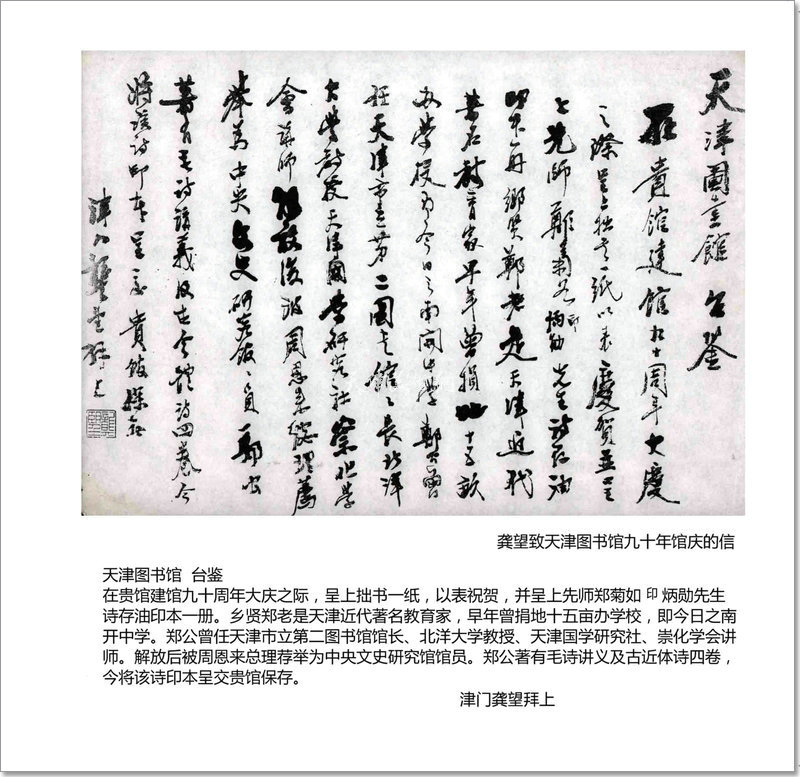 天津圖書館 台鉴
在貴館建館九十周年大慶
之際呈上拙書一紙以表慶賀並呈
上先師鄭菊如印炳勛先生詩存油
印本一册鄉賢鄭老是天津近代
著名教育家早年曾捐地十五畝
办學校即今日之南開中學鄭公曾
任天津市立第二圖書館々長北洋
大學教授天津國學研究社崇化學
會講師解放後被周恩来總理薦
舉为中央文史研究館々員鄭公
著有毛詩講義及古今體詩四卷今
将該詩印本呈交貴館保存
津门龔望拜上
龚望致天津图书馆九十年馆庆的信
天津图书馆 台鉴
在贵馆建馆九十周年大庆之际，呈上拙书一纸，以表祝贺，并呈上先师郑菊如 印 炳勋先生
诗存油印本一册。乡贤郑老是天津近代著名教育家，早年曾捐地十五亩办学校，即今日之南
开中学。郑公曾任天津市立第二图书馆馆长、北洋大学教授、天津国学研究社、崇化学会讲
师。解放后被周恩来总理荐举为中央文史研究馆馆员。郑公著有毛诗讲义及古近体诗四卷，
今将该诗印本呈交贵馆保存。
津门龚望拜上